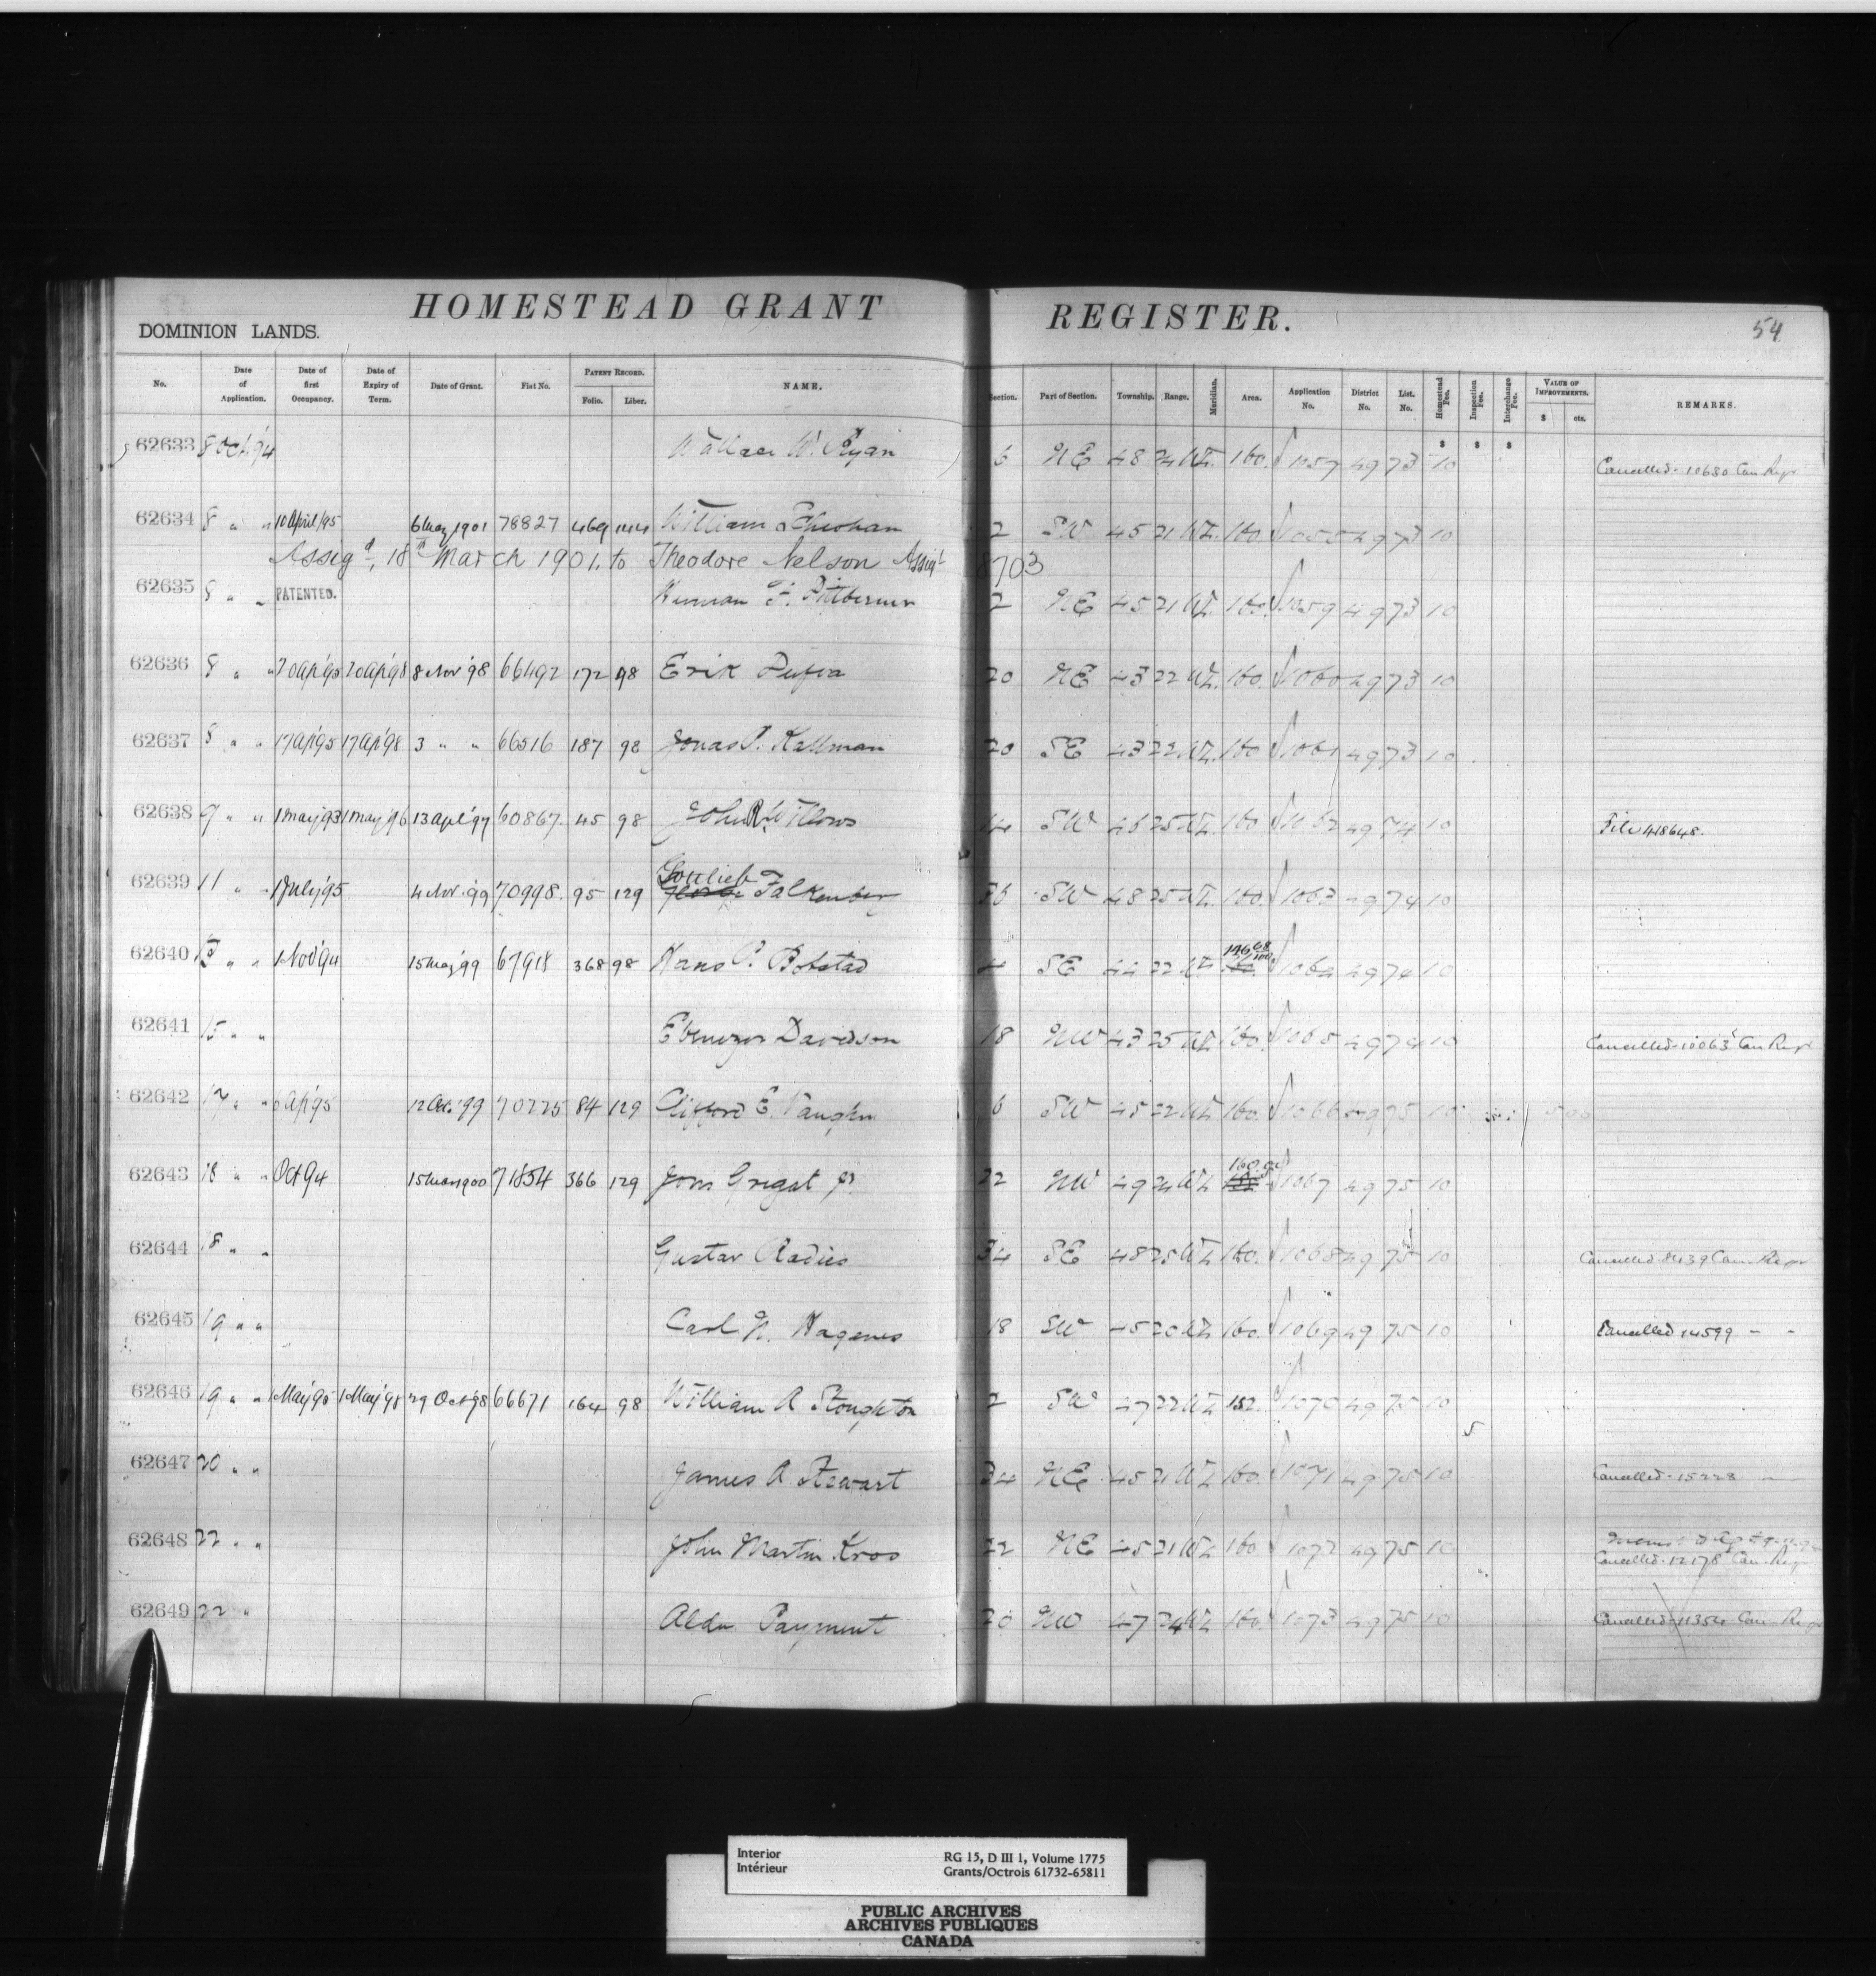 HOMESTEAD GRANT REGISTER.
54
DOMINION LANDS.
No. Date of Application. Date of first Occupancy. Date of Expiry of Term. Date of Grant. Fiat No. PATENT RECORD. Folio. Liber. NAME. Section. Part of Section. Township. Range. Meridian. Area. Application No. District No. List. No. Homestead Fee. Inspection Fee. Interchange Fee. VALUE OF IMPROVEMENTS. $ cts. REMARKS.
62633 8 Oct '94 Wallace W. Ryan 6 NE 48 24 W2. 160. 1057 49 73 10 Cancelled - 10680 Can Regr
62634 8 " " 10 April/95 6 May 1901 78827 469 144 William 2 SW 45 21 W2. 160. 49 73 10
Assigd. 18th March 1901. to Theodore Nelson Assigt 8703
62635 8 " " PATENTED. F. 2 NE 45 21 W2. 160. 1059 49 73 10
62636 8 " " 20 Ap '95 20 Ap '98 8 Nov '98 66492 172 98 Erik 20 NE 43 22 W2. 160. 1060 49 73 10
62637 8 " " 17 Ap '95 17 Ap '98 3 " " 66516 187 98 Jonas P. Kallman 20 SE 43 22 W2. 160 1061 49 73 10
62638 9 " " 1 May '93 1 May '96 13 Apl '97 60867. 45 98 John R. Willows 14 SW 46 25 W2. 160 1062 49 74 10 File 418648.
62639 11 " " 1 July '95 4 Nov. '99 70998. 95 129 Gottlieb Falkenberg 36 SW 48 25 W2. 160. 1063 49 74 10
62640 " " 1 Nov '94 15 May '99 67918 368 98 Hans P. Bobstad 4 SE 44 22 W2 146 68/100 1064 49 74 10
62641 15 " " Ebenezer Davidson 18 NW 43 25 W2. 160. 1065 49 74 10 Cancelled - 10063 Can Regr
62642 17 " " Ap '95 12 Oct. '99 70225 84 129 Clifford E. Vaughn 6 SW 45 22 W2 160. 1066 49 75 10
62643 18 " " Oct 94 15 Mar 1900 71854 366 129 Jons Grigat jr 22 NW 49 24 W2 160. 1067 49 75 10
62644 18 " " Gustav Radies 34 SE 48 25 W2 160. 1068 49 75 10 Cancelled 8439 Can Regr
62645 19 " " Carl N. Hagenes 18 SW 45 20 W2 160. 1069 49 75 10 Cancelled 14599 " "
62646 19 " " 1 May '95 1 May '98 29 Oct '98 66671 164 98 William A Stoughton 2 SW 47 22 W2 152. 1070 49 75 10
5
62647 20 " " James A Stewart 34 NE 45 21 W2 160. 1071 49 75 10 Cancelled - 15228 "
62648 22 " " John Martin Kros 22 NE 45 21 W2 160 1072 49 75 10 Cancelled - 12178 Can Regr
62649 22 " Alda Payment 20 NW 47 24 W2 160. 1073 49 75 10 Cancelled - 11354 Can Regr
Interior
Intérieur
RG 15, D III 1, Volume 1775
Grants/Octrois 61732-65811
PUBLIC ARCHIVES
ARCHIVES PUBLIQUES
CANADA